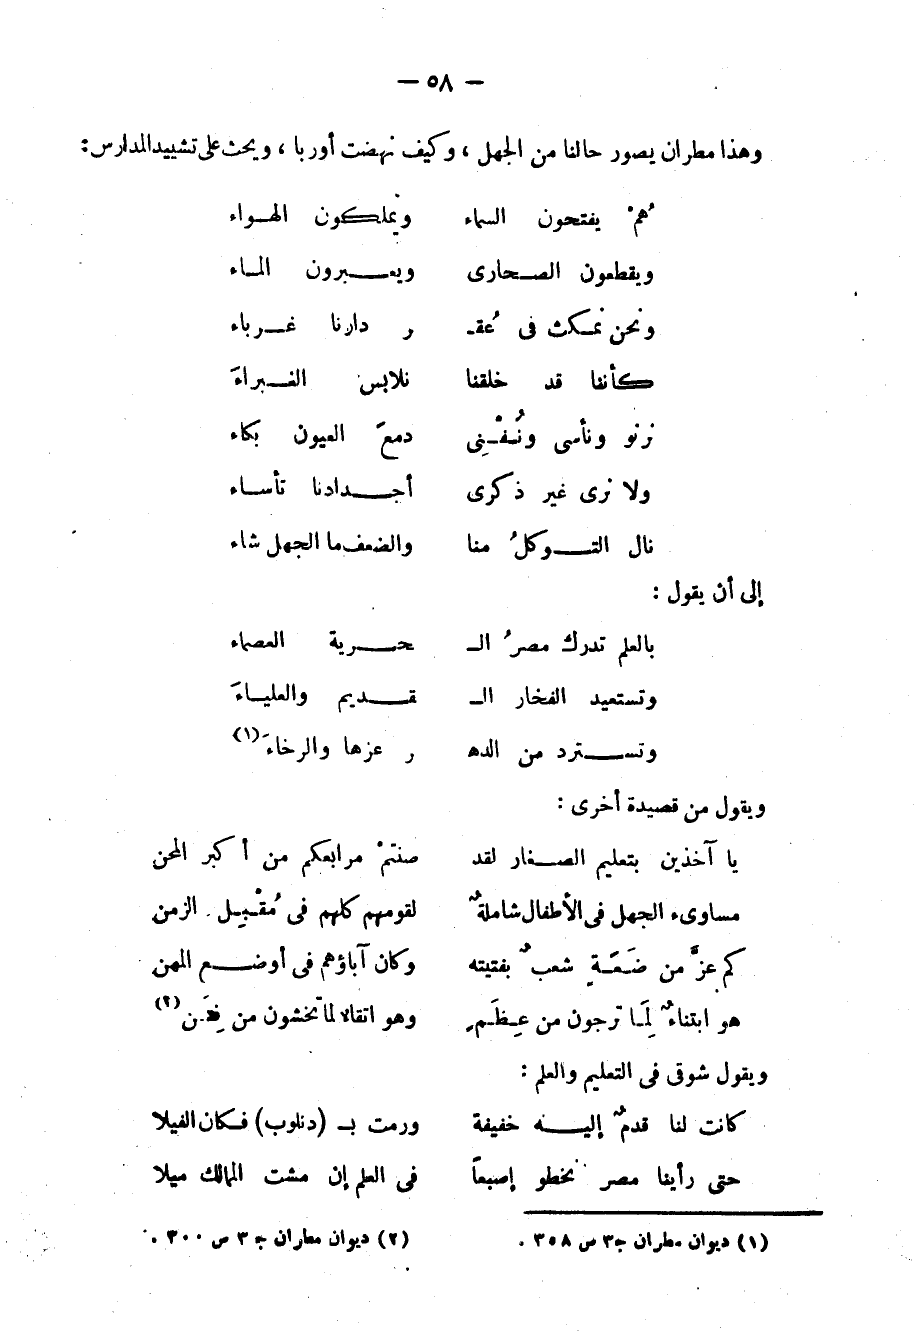 — ٥٨ —
وهذا مطران يصور حالنا من الجهل ، وكيف نهضت أوربا ، ويحث على تشييد المدارس :
هُمْ يفتحون السماء ويملكون الهـواء
ويقطعون الصـحارى ويعـــبرون المـاء
ونحن نمكث فى عُقـ ر دارنا غـرباء
كأننا قد خلقنا نلابس الغـبراءَ
نرنو ونأسى ونُـفْـنِى دمعَ العيون بكاء
ولا نرى غير ذكرى أجـــدادنا تأساء
نال التـــوكلُ منا والضعف ما الجهل شاء
إلى أن يقول :
بالعلم تدرك مصرُ الـ حـــرية العصماء
وتستعيد الفخار الـ قـــديم والعليـاءَ
وتســـترد من الده ر عزها والرخاءَ (١)
ويقول من قصيدة أخرى :
يا آخذين بتعليم الصـغار لقد صنتمْ مرابعكم من أكبر المحن
مساوىء الجهل فى الأطفال شاملةٌ لقومهم كلهم فى مُقْبِـل الزمن
كم عزَّ من ضَـعَـةٍ شعبٌ بفتيته وكان آباؤهم فى أوضـــع المهن
هو ابتناءٌ لِمَـا ترجون من عِـظَـمٍ وهو اتقاء لما تخشون من فِتَـن (٢)
ويقول شوقى فى التعليم والعلم :
كانت لنا قدمٌ إليـــه خفيفة ورمت بـ (دنلوب) فـكان الفيلا
حتى رأينا مصر تخطو إصبعاً فى العلم إن مشت الممالك ميلا
(١) ديوان مطران ج٣ ص ٣٥٨ . (٢) ديوان مطران ج٣ ص ٣٠٠ .